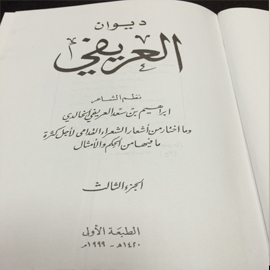 ديوان
العريفي
نظم الشاعر
ابراهيم بن سعد العريفي الخالدي
وما اختار من أشعار الشعراء القدامى لأجل كثرة
ما فيها من الحكم والأمثال
الجزء الثالث
الطبعة الأولى
١٤٢٠هـ - ١٩٩٩م